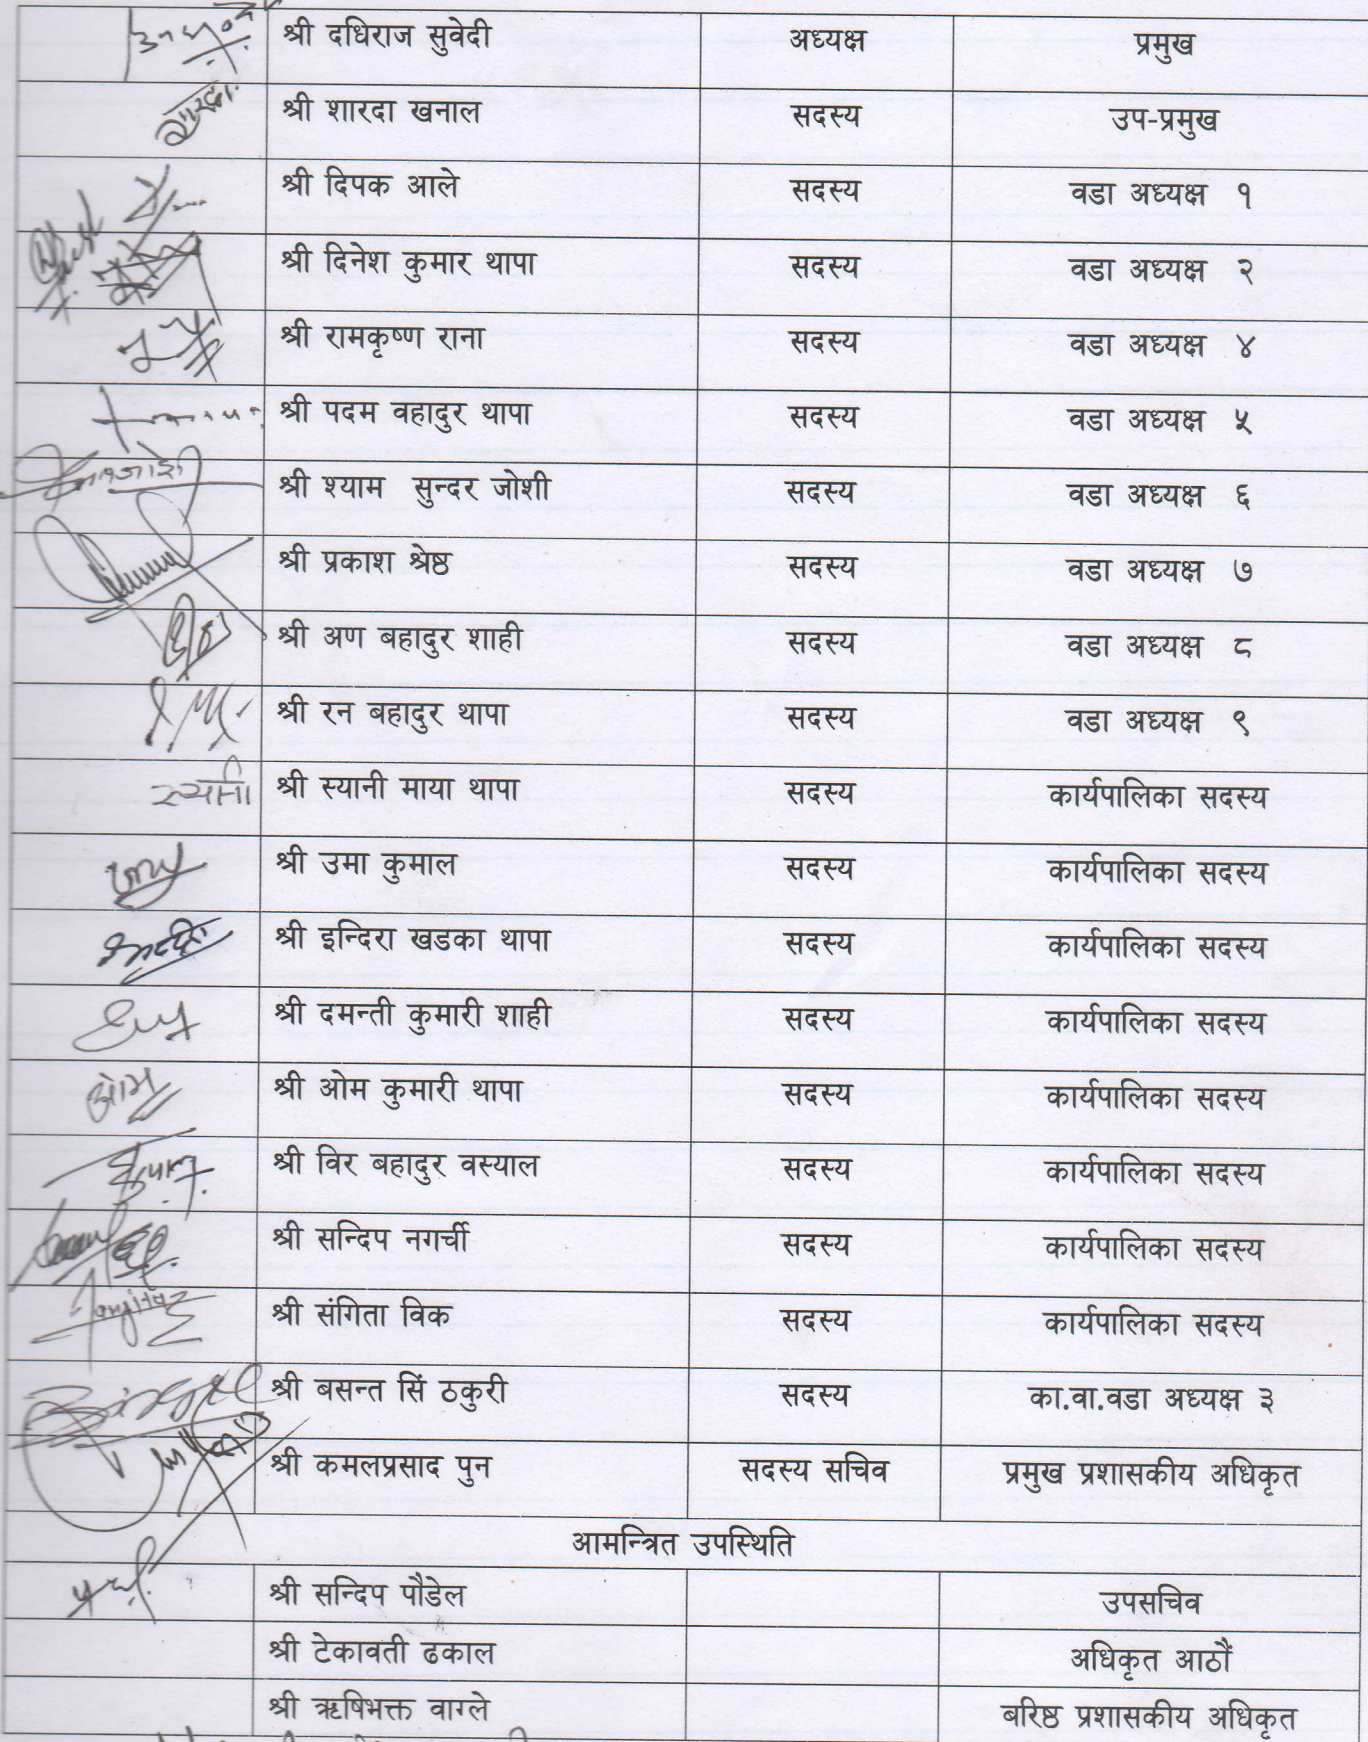 श्री दधिराज सुवेदी अध्यक्ष प्रमुख
शारदा श्री शारदा खनाल सदस्य उप-प्रमुख
श्री दिपक आले सदस्य वडा अध्यक्ष १
श्री दिनेश कुमार थापा सदस्य वडा अध्यक्ष २
श्री रामकृष्ण राना सदस्य वडा अध्यक्ष ४
श्री पदम वहादुर थापा सदस्य वडा अध्यक्ष ५
श्री श्याम सुन्दर जोशी सदस्य वडा अध्यक्ष ६
श्री प्रकाश श्रेष्ठ सदस्य वडा अध्यक्ष ७
श्री अण बहादुर शाही सदस्य वडा अध्यक्ष ८
श्री रन बहादुर थापा सदस्य वडा अध्यक्ष ९
स्यानी श्री स्यानी माया थापा सदस्य कार्यपालिका सदस्य
श्री उमा कुमाल सदस्य कार्यपालिका सदस्य
श्री इन्दिरा खडका थापा सदस्य कार्यपालिका सदस्य
श्री दमन्ती कुमारी शाही सदस्य कार्यपालिका सदस्य
ओम श्री ओम कुमारी थापा सदस्य कार्यपालिका सदस्य
श्री विर बहादुर वस्याल सदस्य कार्यपालिका सदस्य
श्री सन्दिप नगर्ची सदस्य कार्यपालिका सदस्य
श्री संगिता विक सदस्य कार्यपालिका सदस्य
श्री बसन्त सिं ठकुरी सदस्य का.वा.वडा अध्यक्ष ३
श्री कमलप्रसाद पुन सदस्य सचिव प्रमुख प्रशासकीय अधिकृत
आमन्त्रित उपस्थिति
श्री सन्दिप पौडेल उपसचिव
श्री टेकावती ढकाल अधिकृत आठौं
श्री ऋषिभक्त वाग्ले बरिष्ठ प्रशासकीय अधिकृत